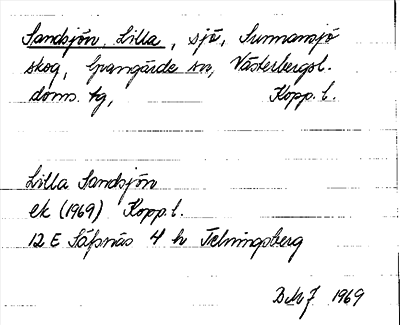 Sandsjön, Lilla, sjö, Sunnansjö
skog, Grangärde sn, Västerbergsl.
doms. tg, Kopp. l.
Lilla Sandsjön
ek (1969) Kopp. l.
12 E Säfsnäs 4 h Telningsberg
1969